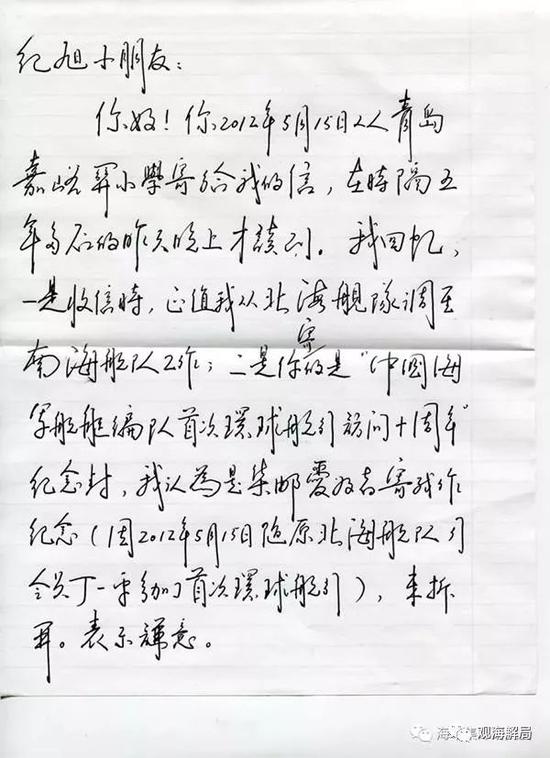 纪旭小朋友：
你好！你2012年5月15日从青岛
嘉峪関小學寄给我的信，在時隔五
年多后的昨天晚上才读到。我回忆，
一是收信時，正值我从北海舰隊调至
南海舰队工作；二是你寄的是“中國海
军舰艇编队首次環球航行访问十周年”
纪念封，我认為是集邮爱好者寄我作
纪念（因2012年5月15日随原北海舰队司
令员丁一平参加了首次環球航行），未拆
开。表示歉意。
观海解局